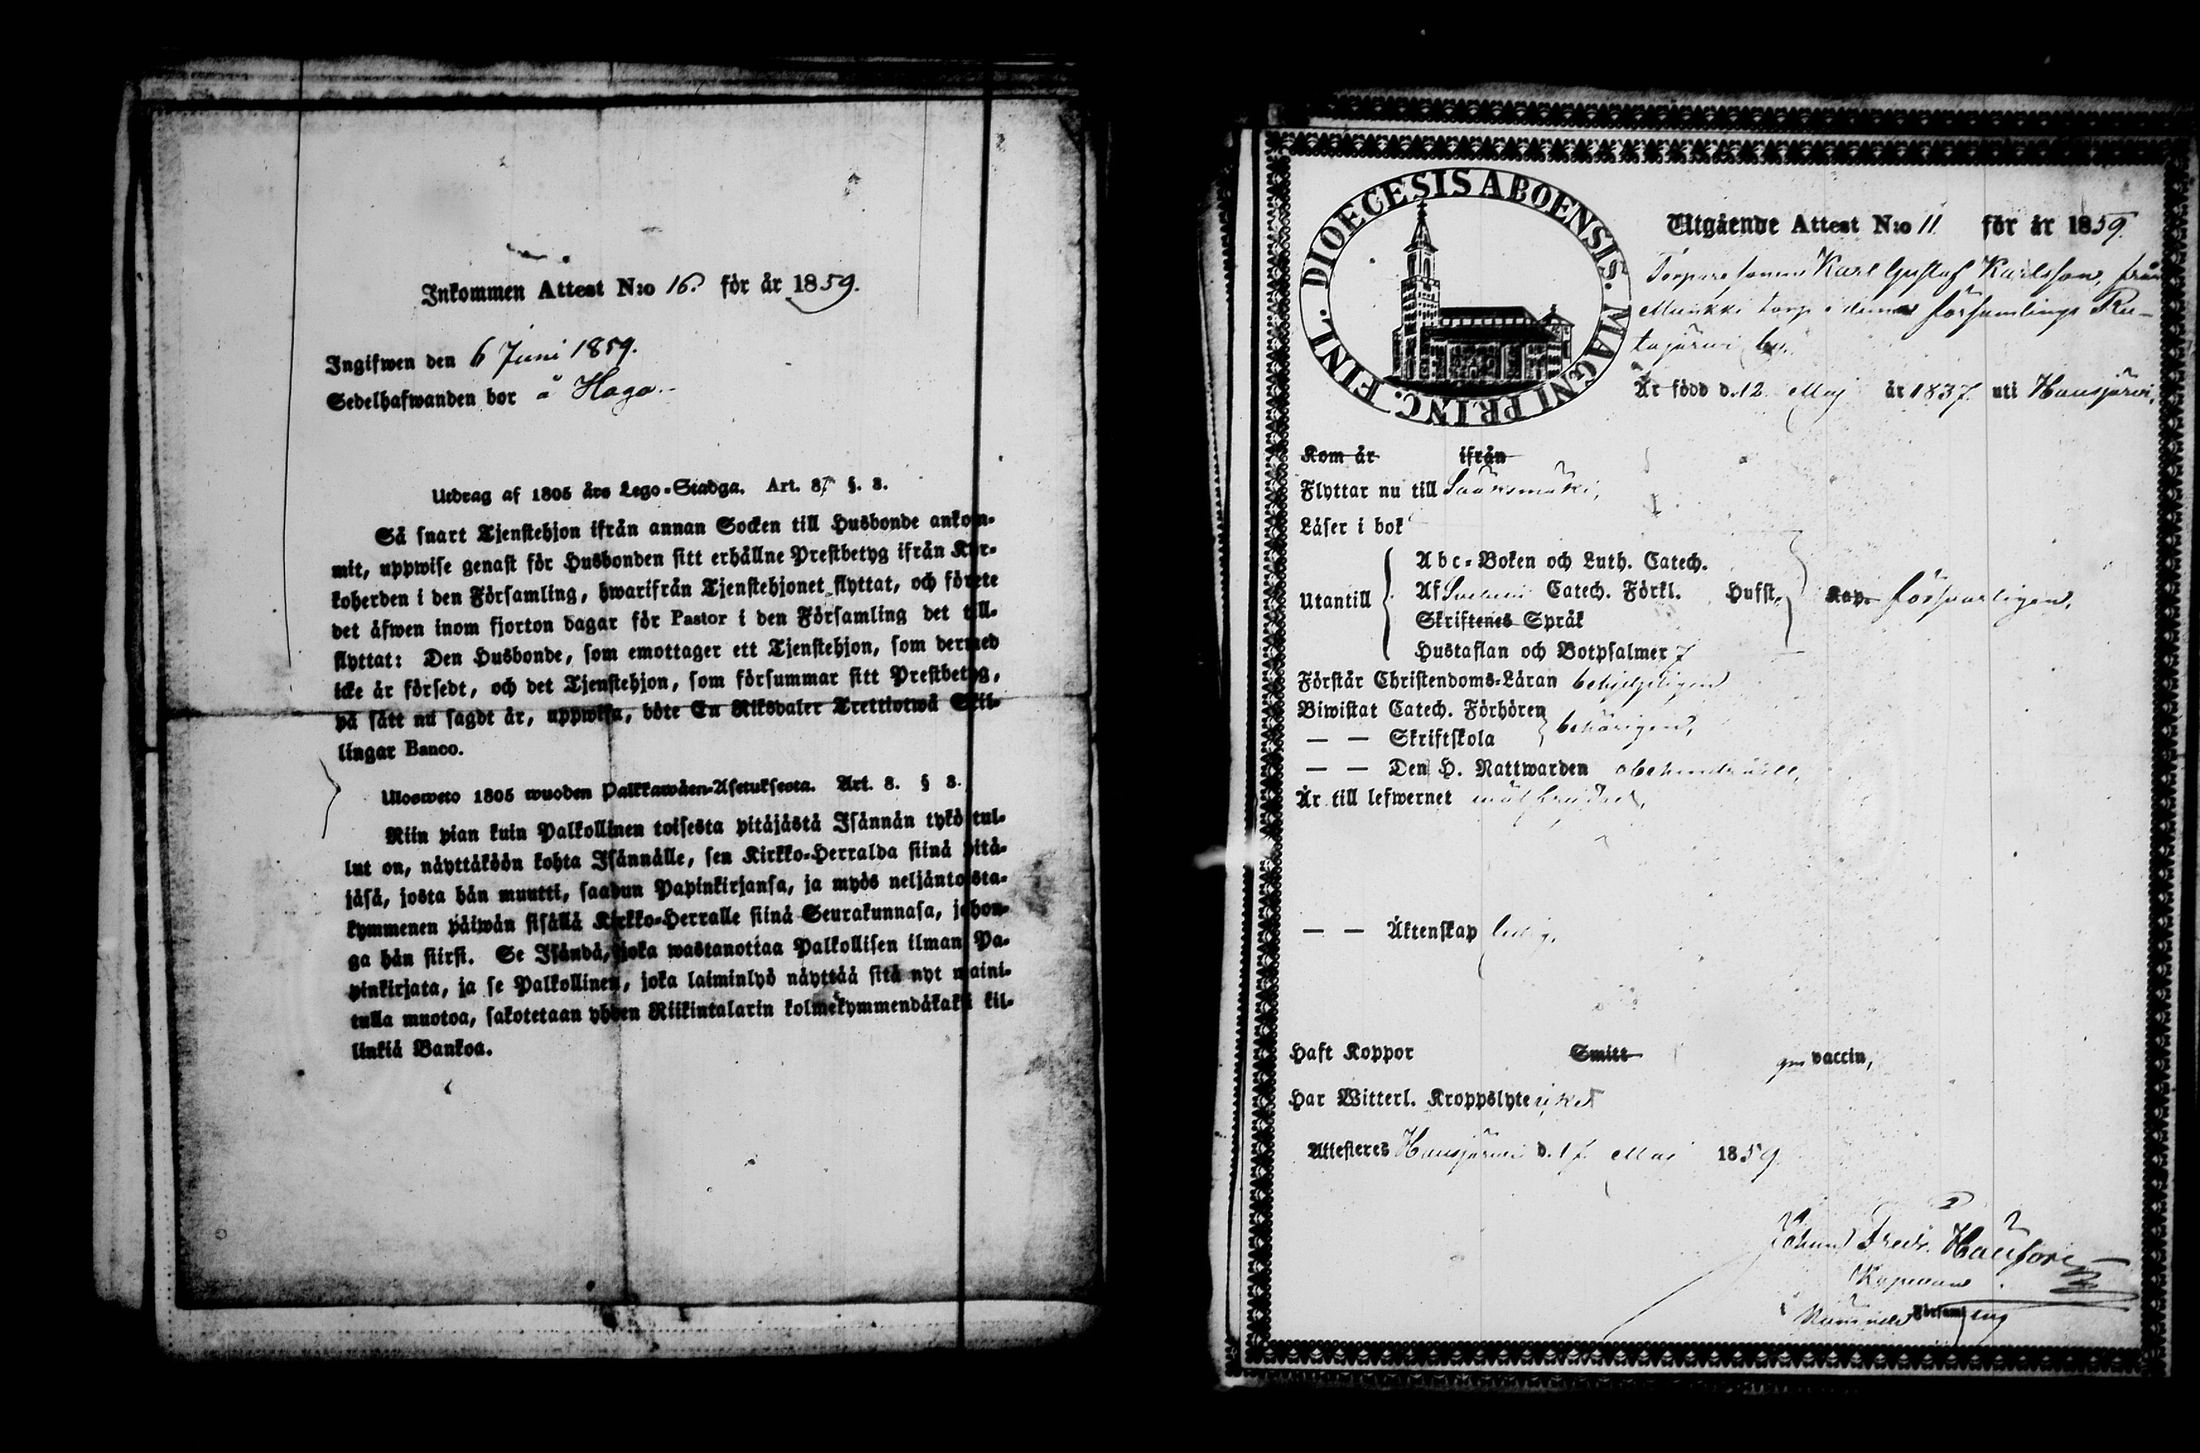 Inkommen Attest N:o 16. för år 1859.
Ingifwen den 6 Juni 1859.
Sedelhafwanden bor å Haga.
Utdrag af 1805 års Lego-Stadga. Art. 8. §. 8.
Så snart Tjenstehjon ifrån annan Socken till Husbonde ankom-
mit, uppwise genast för Husbonden sitt erhållne Prestbetyg ifrån Kyr-
koherden i den Församling, hwarifrån Tjenstehjonet flyttat, och förete
det äfwen inom fjorton dagar för Pastor i den Församling det till-
flyttat: Den Husbonde, som emottager ett Tjenstehjon, som dermed
icke är försedt, och det Tjenstehjon, som försummar sitt Prestbetyg,
på sätt nu sagdt är, uppwisa, böte En Riksdaler Trettiotwå Skil-
lingar Banco.
Ulosweto 1805 wuoden Palkkawäen-Asetuksesta. Art. 8. § 8.
Niin pian kuin Palkollinen toisesta pitäjästä Isännän tykö tul-
lut on, näyttäköön kohta Isännälle, sen Kirkko-Herralda siinä pitä-
jäsä, josta hän muutti, saadun Papinkirjansa, ja myös neljäntoista-
kymmenen päiwän sisällä Kirkko-Herralle siinä Seurakunnasa, johon-
ga hän siirsi. Se Isändä, joka wastanottaa Palkollisen ilman Pa-
pinkirjata, ja se Palkollinen, joka laiminlyö näyttää sitä nyt maini-
tulla muotoa, sakotetaan yhden Riikintalarin kolmekymmendäkaksi kil-
linkiä Bankoa.
DIOECESIS ABOENSIS. MAGNI PRINC. FINL.
Utgående Attest N:o 11 för år 1859.
Torpare sonen Karl Gustaf Karlsson, från
Munkki torp i denna församlings Ru-
tajärwi by.
Är född d. 12 Maj år 1837 uti Hausjärwi,
Kom år ifrån
Flyttar nu till Sääksmäki,
Läser i bok
Utantill
Abc-Boken och Luth. Catech.
Af Svebelii Catech. Förkl. Hufst. Kap. försvarligen,
Skriftenes Språk
Hustaflan och Botpsalmer 7
Förstår Christendoms-Läran behjelpligen
Biwistat Catech. Förhören behörigen,
— — Skriftskola
— — Den H. Nattwarden obehindrad,
Är till lefwernet
— — Äktenskap ledig,
Haft Koppor Smitt gm vaccin,
Har Witterl. Kroppslyte icke
Attesteres Hausjärwi d. 17 Maj 1859
Johan Fredr.
i Församling